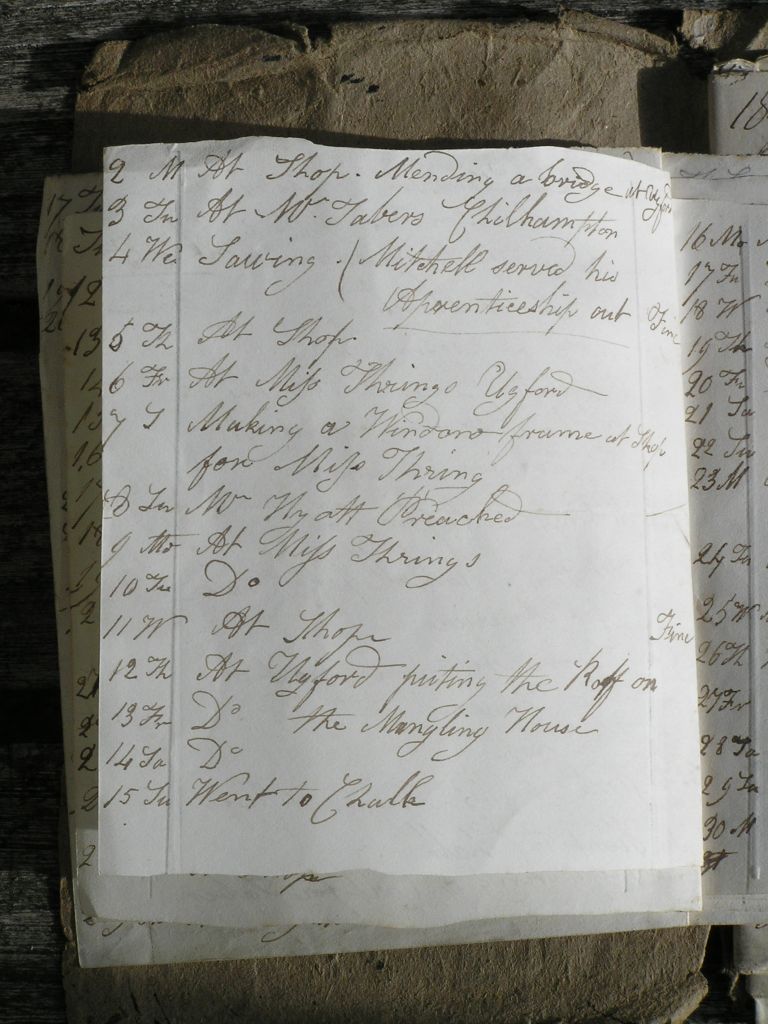 2 M At Shop. Mending a bridge at Ugford
3 Tu At Mr Tabers Chilhampton
4 We Sawing. (Mitchell served his
Aprenticeship out Fine
5 Th At Shop
6 Fr At Miss Thrings Ugford
7 S Making a Window frame at Shop
for Miss Thring
8 Su Mr Hyatt Preached
9 Mo At Miss Thrings
10 Tu Do
11 W At Shop Fine
12 Th At Ugford puting the Roff on
13 Fr Do the Mangling House
14 Sa Do
15 Su Went to Chalk
18
16 Mo
17 Tu
18 W
19 Th
20 Fr
21 Sa
22 Su
23 M
24 Tu
25 W
26 Th
27 Fr
28 Sa
29 Su
30 M